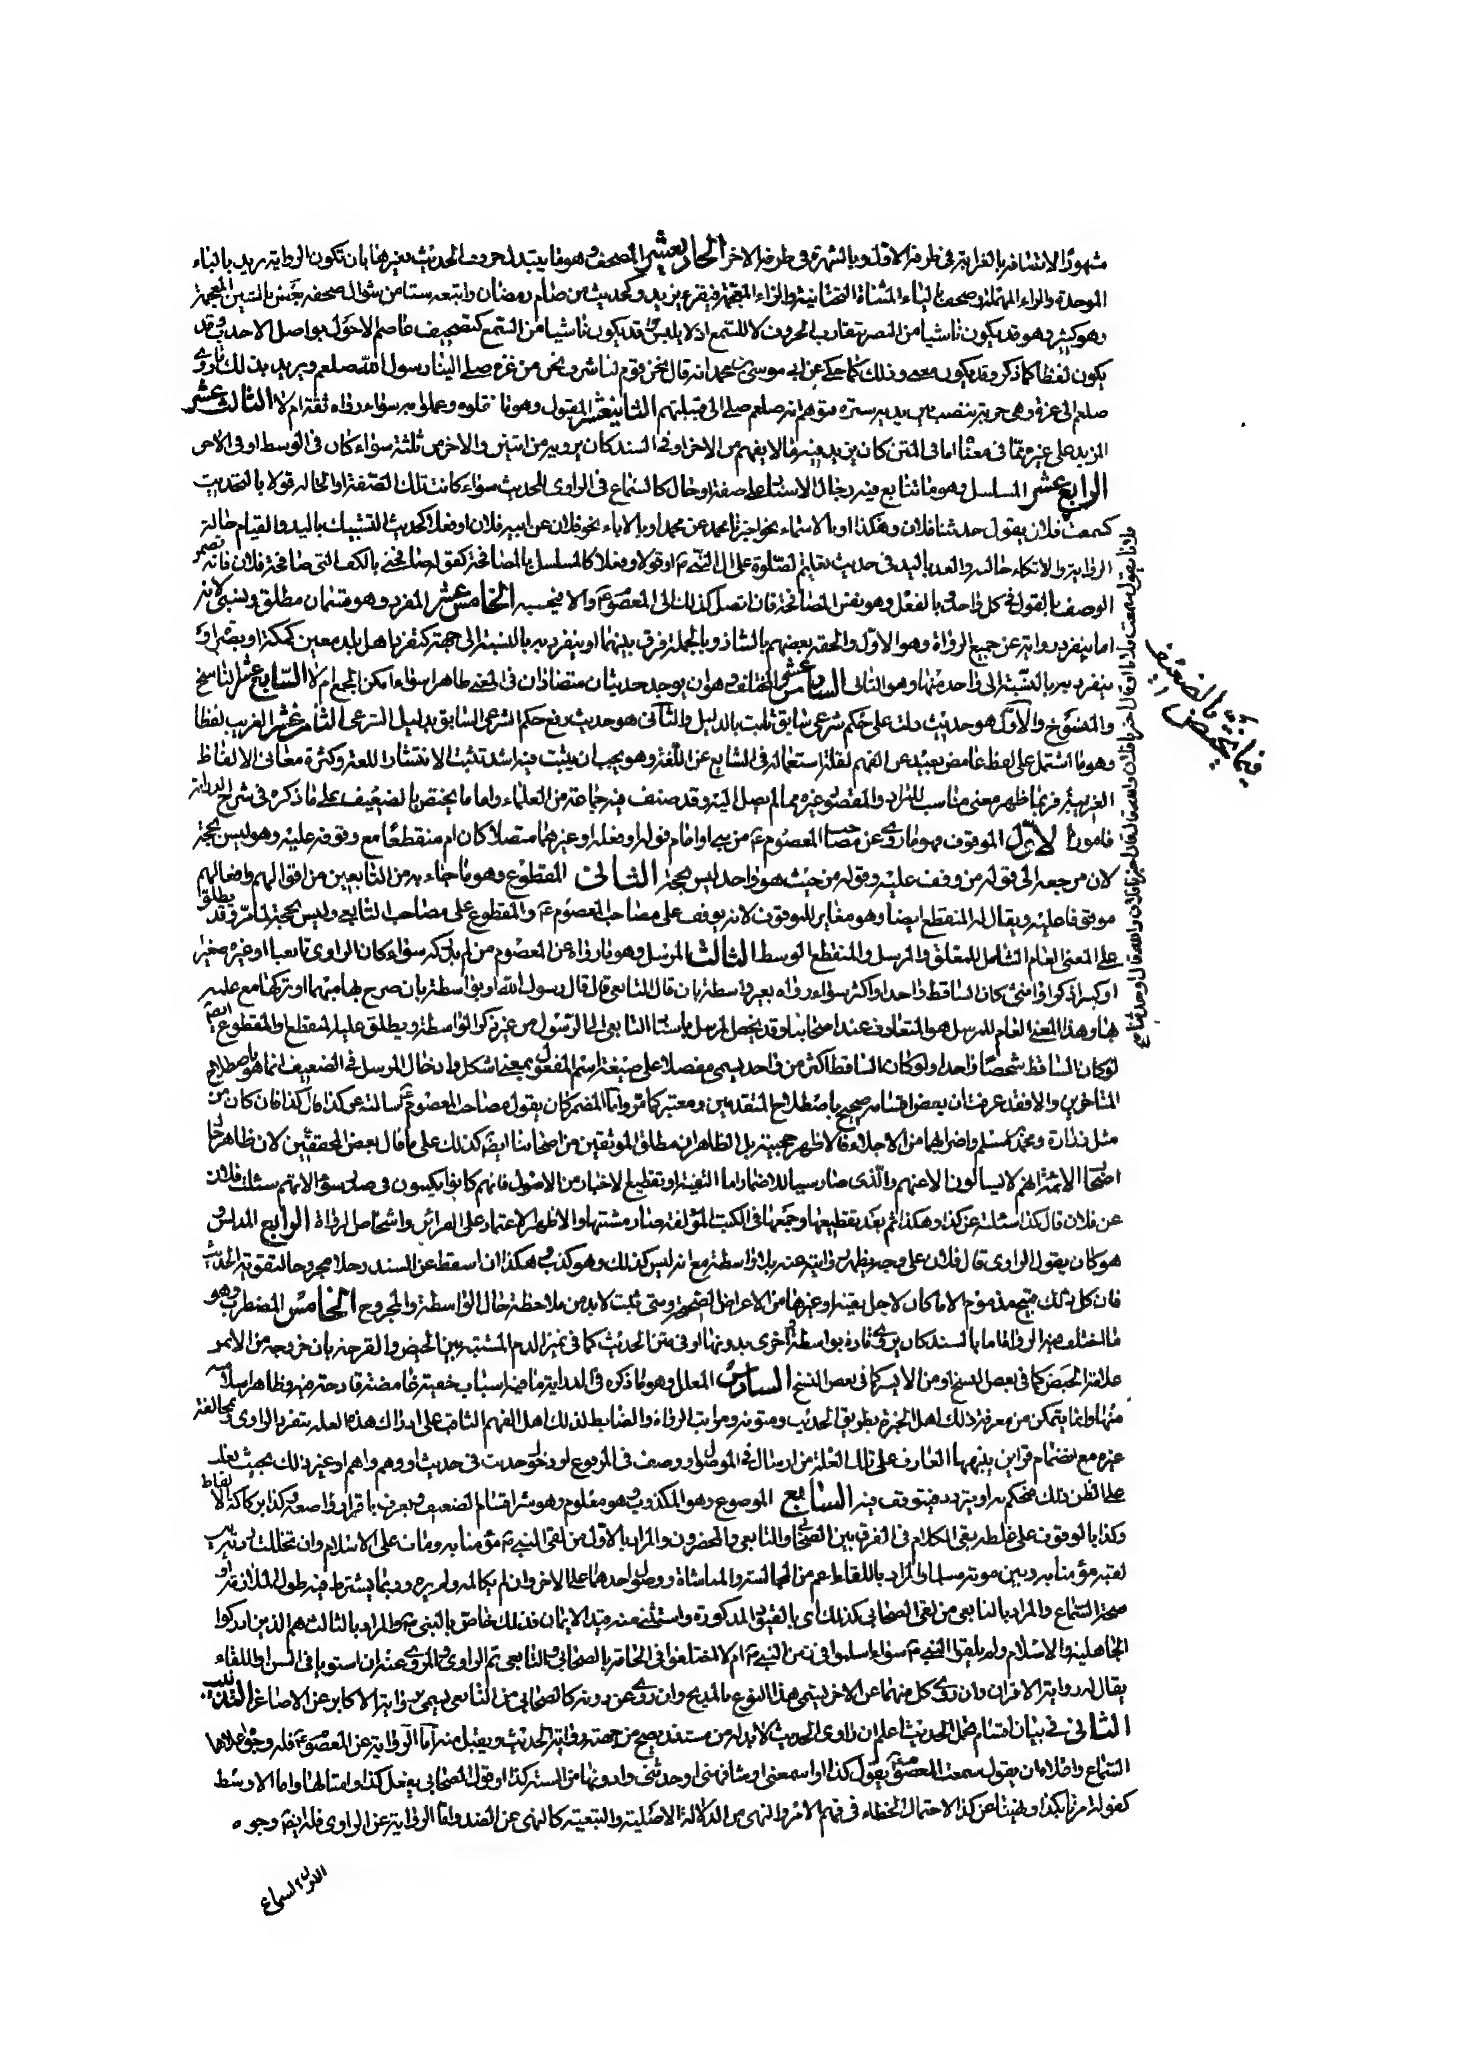 مشهورا لانتشافه بالغرابة في طرفه الاول وبالشهرة في طرفه الاخر الحاديعشر المصحف وهو ما يتبدل حروف الحديث بغيرها بان تكون الرواية بريد بالباء
الموحدة والراء المهملة وصحف بالياء المثناة التحتانية والزاء المعجمة فيقرء يزيد وكحديث من صام رمضان واتبعه ستا من شوال صحفه بعض بالشين المعجمة
وهو كثير وهو قد يكون ناشيا من البصر بتقارب الحروف لا للسمع اذ لا يلبس وقد يكون ناشيا من السمع كتصحيف عاصم الاحول بواصل الاحدب وقد
يكون لفظا كما ذكر وقد يكون معنى وذلك كما حكي عن ابي موسى محمد انه قال نحن قوم لنا شرف نحن من غزة صلى الينا رسول الله صلعم ويريد بذلك ما روي
صلعم الى عنزة وهي حربة تنصب بين يديه سترة فتوهم انه صلعم صلى الى قبيلتهم الثانيعشر المقبول وهو ما تلقوه وعملوا به سواء رواه ثقة ام لا الثالث عشر
المزيد على غيره مما في معناه اما في المتن كان يزيد فيه ما لا يفهم من الاخر او في السند كان يرويه من اثنين والاخر من ثلثة سواء كان في الوسط او في الاخر
الرابع عشر المسلسل وهو ما تتابع فيه رجال الاسناد على صفة او حال كالسماع في الراوي للحديث سواء كانت تلك الصفة او الحالة قولا بالتحديث
كسمعت فلان يقول حدثنا فلان وهكذا او بالاسماء نحو اخبرنا محمد عن محمد او بالاباء نحو فلان عن ابيه فلان او فعلا كحديث التشبيك باليد والقيام حالة
الرواية والاتكاء حاله والعد باليد في حديث تعليم الصلوة على ال النبي او قولا وفعلا كالمسلسل بالمصافحة كقوله صافحني بالكف التي صافحت فلان فانه تضمن
الوصف بالقول في كل واحد وبالفعل وهو نفس المصافحة فان اتصل كذلك الى المعصوم والا فبحسبه الخامس عشر المفرد وهو قسمان مطلق ونسبي لانه
اما ينفرد روايه عن جميع الرواة وهو الاول والحقه بعضهم بالشاذ وبالجملة فرق بينهما او ينفرد به بالنسبة الى جهة كتفرد اهل بلد معين كمكة او بصرة او
ينفرد به بالنسبة الى واحد منها وهو الثاني السادس عشر المختلف وهو ان يوجد حديثان متضادان في المعنى ظاهرا سواء امكن الجمع ام لا السابع عشر الناسخ
والمنسوخ والاول هو حديث دل على حكم شرعي سابق ثابت بالدليل والثاني هو حديث رفع حكم الشرعي السابق بدليل الشرعي الثامن عشر الغريب لفظا
وهو ما اشتمل على لفظ غامض بعيد عن الفهم لقلة استعماله في الشايع عن اللغة وهو يجب ان يثبت فيه اشد تثبت لانتشار اللغة وكثرة معاني الالفاظ
الغريبة فربما ظهر معنى مناسب للمراد والمقصود غيره مما لم يصل اليه وقد صنف فيه جماعة من العلماء واما ما يختص بالضعيف على ما ذكره في شرح الدراية
فامور الاول الموقوف وهو ما روي عن مصاحب المعصوم من نبي او امام قوله او فعله او غيرهما متصلا كان ام منقطعا مع وقوفه عليه وهو ليس بحجة
لان مرجعه الى قوله من وقف عليه وقوله من حيث هو واحد ليس بحجة الثاني المقطوع وهو ما جاء به من التابعين من اقوالهم وافعالهم
موقوفا عليه ويقال له المنقطع ايضا وهو مغاير للموقوف لانه يوقف على مصاحب المعصوم والمقطوع على مصاحب التابعي وليس بحجة لما مر وقد يطلق
على المعنى العام الشامل للمعلق والمرسل والمنقطع الوسط الثالث المرسل وهو ما رواه عن المعصوم من لم يدركه سواء كان الراوي تابعيا او غيره صغيرا
او كبيرا ذكرا او انثى كان الساقط واحدا او اكثر سواء رواه بغير واسطة بان قال التابعي قال قال رسول الله او بواسطة بان صرح بها مبهما او تركها مع علمه
بها وهذا المعنى العام للمرسل هو المتعارف عند اصحابنا وقد يخص المرسل باسناد التابعي الى الرسول من غير ذكر الواسطة ويطلق عليه المنقطع والمقطوع ايضا
لو كان الساقط شخصا واحدا ولو كان الساقط اكثر من واحد يسمى معضلا على صيغة اسم المفعول بمعنى اشكل وادخال المرسل في الضعيف انما هو باصطلاح
المتاخرين والا فقد عرفت ان بعض اقسامه صحيح باصطلاح المتقدمين ومعتبر كما مر واما المضمر كان يقول مصاحب المعصوم سالته عن كذا قال كذا فان كان من
مثل زرارة ومحمد بن مسلم واضرابهما من الاجلاء فالاظهر حجيته بل الظاهر ان مطلق الموثقين من اصحابنا ايضا كذلك على ما قال بعض المحققين لان ظاهر حال
اصحاب الائمة انهم لا يسالون الا عنهم والذي صار سببا للاضمار اما التقية او تقطيع الاخبار من الاصول فانهم كانوا يكتبون في صدر سؤالاتهم سئلت فلان
عن فلان قال كذا سئلته عن كذا وهكذا ثم بعد تقطيعها وجمعها في الكتب المؤلفة صار مشتبها والاظهر الاعتماد على القرائن واشخاص الرواة الرابع المدلس و
هو كان يقول الراوي قال فلان على وجه يظهر روايته عنه بلا واسطة مع انه ليس كذلك وهو كذب وهكذا ان اسقط عن السند رجلا مجروحا لتقوية الحديث
فان كل ذلك قبيح مذموم الا ما كان لاجل تقية او غيرها من الاغراض الصحيحة ومتى ثبت لا بد من ملاحظة حال الواسطة والمجروح الخامس المضطرب وهو
ما اختلف فيه الرواة اما بالسند كان يروي تارة بواسطة واخرى بدونها او في متن الحديث كما في تميز الدم المشتبه بين الحيض والقرحة بان خروجه من الايمن
علامة الحيض كما في بعض النسخ او من الايسر كما في بعض النسخ السادس المعلل وهو ما ذكره في الدراية ما فيه اسباب خفية غامضة قادحة فيه وظاهره السلامة
منها وانما يتمكن من معرفة ذلك اهل الخبرة بطريق الحديث ومتونه ومراتب الرواة والضابط لذلك اهل الفهم الثاقب على ادراك هذه العلة بتفرد الراوي وبمخالفة
غيره مع انضمام قراين ينبه العارف على تلك العلة من ارسال في الموصول او وصف في المرفوع او دخول حديث في حديث او وهم واهم او غير ذلك بحيث يغلب
على الظن ذلك فيحكم به او يتردد فيتوقف فيه السابع الموضوع وهو المكذوب وهو معلوم وهو شر اقسام الضعيف ويعرف باقرار واضعه وكذا بركاكة الالفاظ
وكذا بالوقوف على غلطه بقي الكلام في الفرق بين الصحابي والتابعي والمخضرمون والمراد بالاول من لقى النبي مؤمنا به ومات على الاسلام وان تخللت ردته بين
لقيه مؤمنا به وبين موته مسلما والمراد باللقاء اعم من المجالسة والمماشاة ووصول احدهما على الاخر وان لم يكالمه ولم يره وربما يشترط فيه طول الملازمة او
صحة السماع والمراد بالتابعي من لقى الصحابي كذلك اي بالقيود المذكورة واستثنى منه قيد الايمان فذلك خاص بالنبي والمراد بالثالث هم الذين ادركوا
الجاهلية والاسلام ولم يلق النبي سواء اسلموا في زمن النبي ام لا لاختلفوا في الحاقه بالصحابي والتابعي ثم الراوي والمروي عنه ان استويا في السن او اللقاء
يقال له رواية الاقران وان روى كل منهما عن الاخر يسمى هذا النوع بالمدبج وان روى عن دونه كالصحابي من التابعي يسمى برواية الاكابر عن الاصاغر التذنيب
الثاني في بيان اقسام تحمل الحديث اعلم ان راوي الحديث لا بد له من مستند يصح من جهته رواية الحديث ويقبل منه اما الرواية عن المعصوم فله وجوه اعلاها
السماع واعلاه ان يقول سمعت المعصوم يقول كذا او اسمعني او شافهني او حدثني وادونها من السند كذا او قول الصحابي يفعل كذا وامثالها واما الاوسط
كقوله امرنا بكذا ونهينا عن كذا لاحتمال الخطاء في فهم الامر والنهي من الدلالة الاصلية والتبعية كالنهي عن الضد واما الرواية عن الراوي فله ايضا وجوه
الاول السماع
فيما يختص بالضعيف